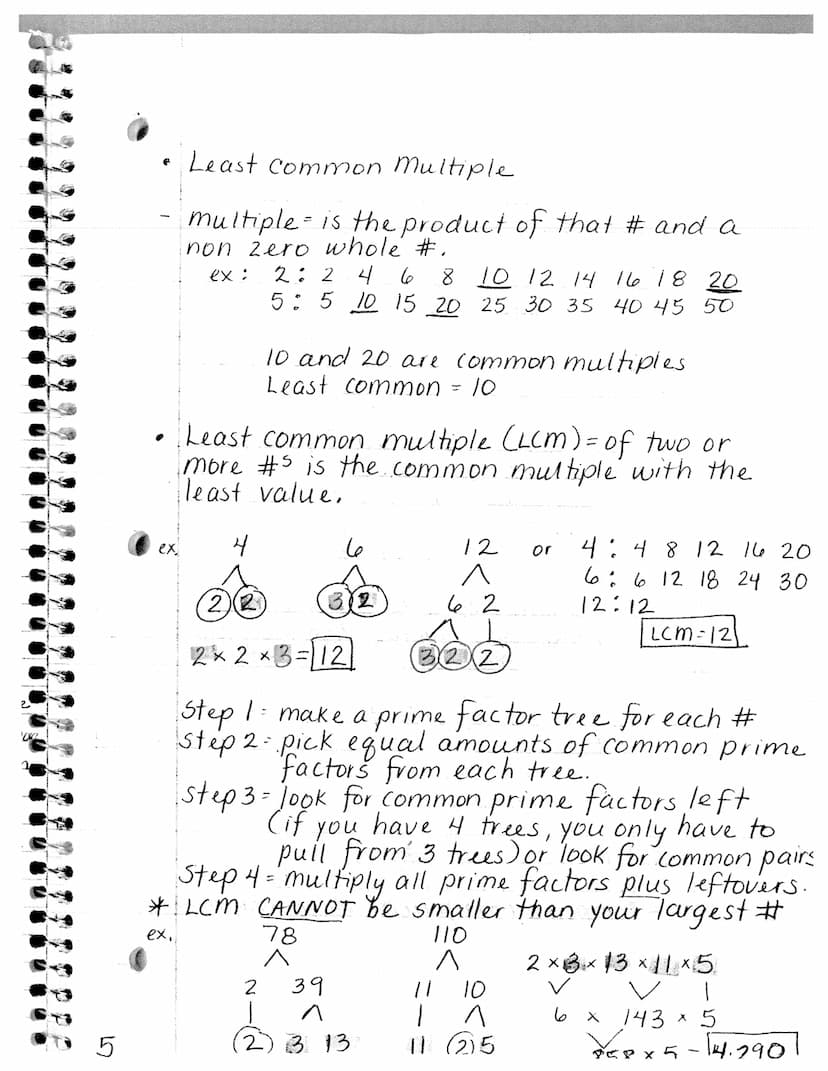 • Least common multiple
- multiple = is the product of that # and a
non zero whole #.
ex: 2: 2 4 6 8 10 12 14 16 18 20
5: 5 10 15 20 25 30 35 40 45 50
10 and 20 are common multiples
Least common = 10
• Least common multiple (LCM) = of two or
more #s is the common multiple with the
least value.
ex. 4 6 12 or 4: 4 8 12 16 20
6: 6 12 18 24 30
2 2 3 2 6 2 12: 12
LCM = 12
2 × 2 × 3 = 12 3 2 2
Step 1 = make a prime factor tree for each #
Step 2 = pick equal amounts of common prime
factors from each tree.
Step 3 = look for common prime factors left
(if you have 4 trees, you only have to
pull from 3 trees) or look for common pairs
Step 4 = multiply all prime factors plus leftovers.
* LCM CANNOT be smaller than your largest #
ex. 78 110
2 × 3 × 13 × 11 × 5
2 39 11 10
6 × 143 × 5
2 3 13 11 2 5
× 5 = 4,290
5